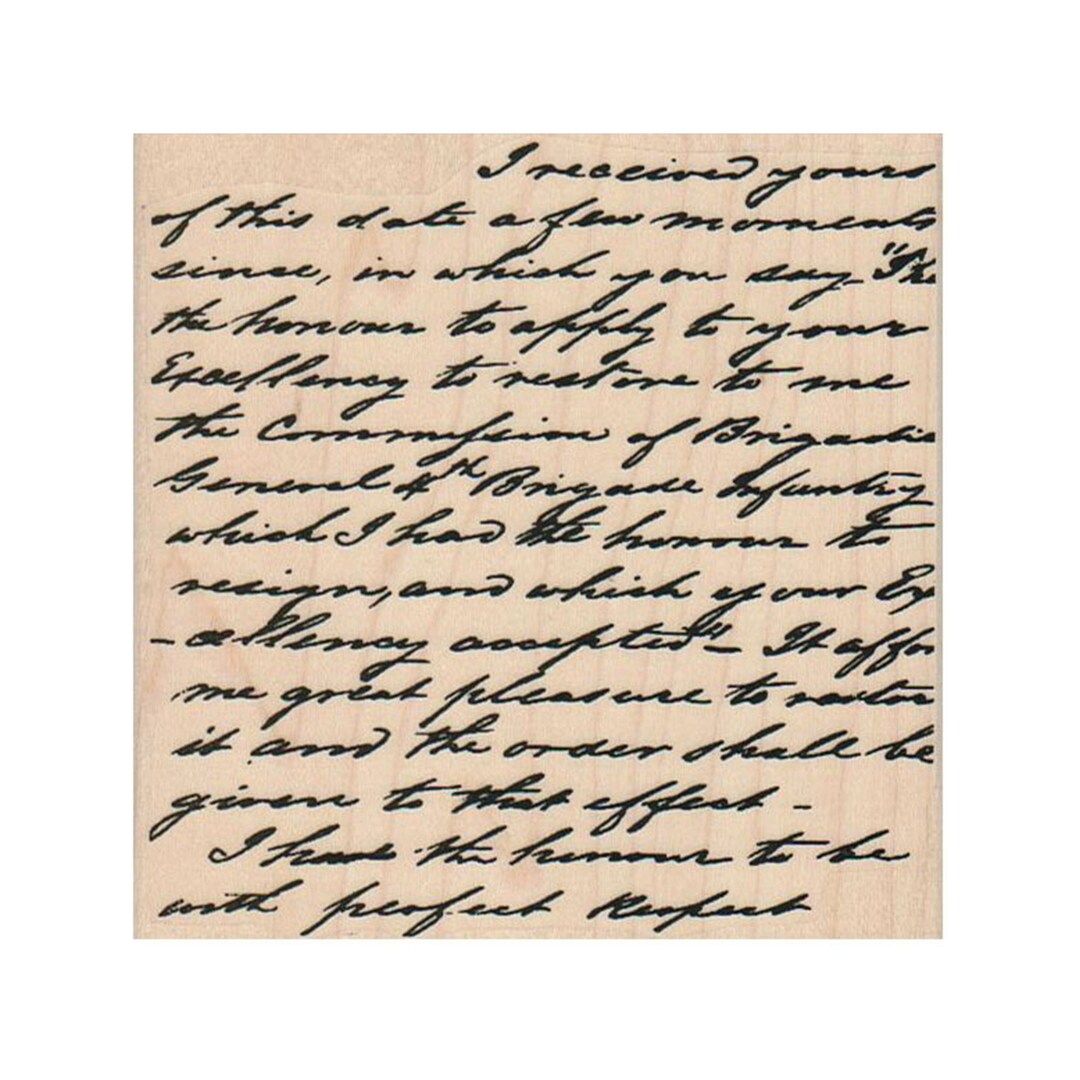 I received yours
of this date a few moments
since, in which you say "I ha
the honour to apply to your
Excellency to restore to me
the Commission of Brigadie
General 4th Brigade Infantry
which I had the honour to
resign, and which your Ex
-cellency accepted" - It affor
me great pleasure to restor
it and the order shall be
given to that effect -
I have the honour to be
with perfect Respect